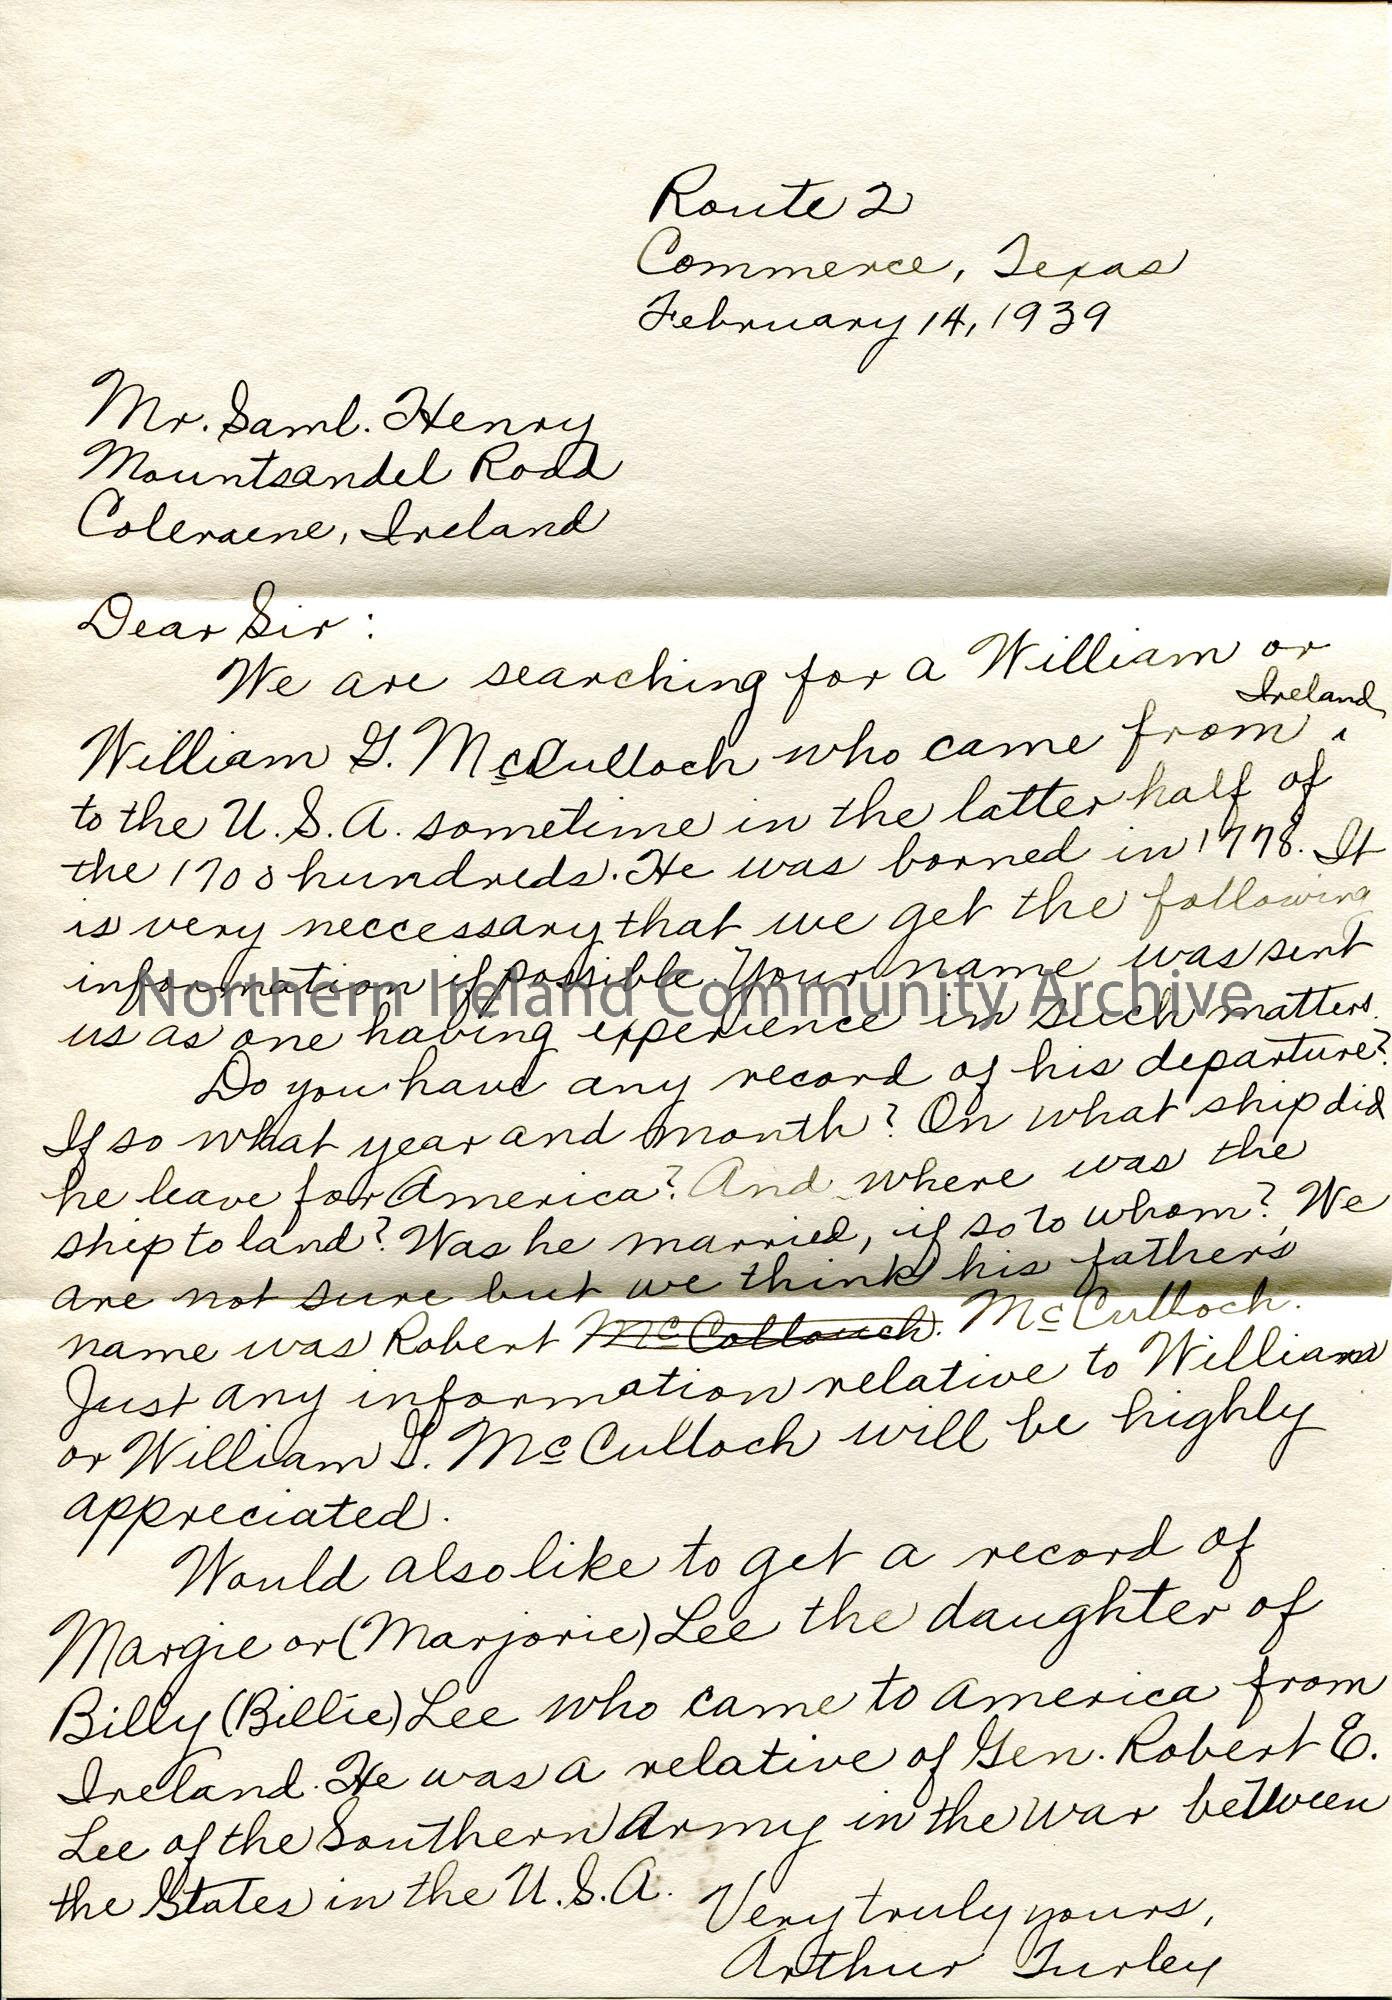 Route 2
Commerce, Texas
February 14, 1939
Mr. Saml. Henry
Mountsandel Road
Coleraene, Ireland
Dear Sir:
We are searching for a William or
William G. McCulloch who came from ^ Ireland
to the U.S.A. sometime in the latter half of
the 1700 hundreds. He was borned in 1778. It
is very neccessary that we get the following
information if possible. Your name was sent
Northern Ireland Community Archive
us as one having experience in such matters.
Do you have any record of his departure?
If so what year and month? On what ship did
he leave for America? And where was the
ship to land? Was he married, if so to whom? We
are not sure but we think his fathers
name was Robert McCollouch. McCulloch.
Just any information relative to William
or William G. McCulloch will be highly
appreciated.
Would also like to get a record of
Margie or (Marjorie) Lee the daughter of
Billy (Billie) Lee who came to America from
Ireland. He was a relative of Gen. Robert E.
Lee of the Southern Army in the war between
the States in the U.S.A.
Very truly yours,
Arthur Turley